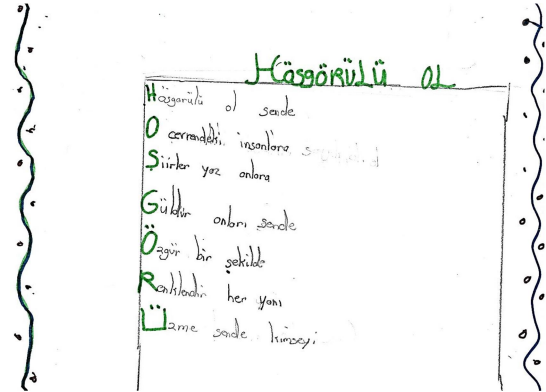 Hoşgörülü OL
Hoşgörülü ol sende
O çevrendeki insanlara
Şiirler yaz onlara
Güldür onları sende
Özgür bir şekilde
Renklendir her yanı
Üzme sende kimseyi